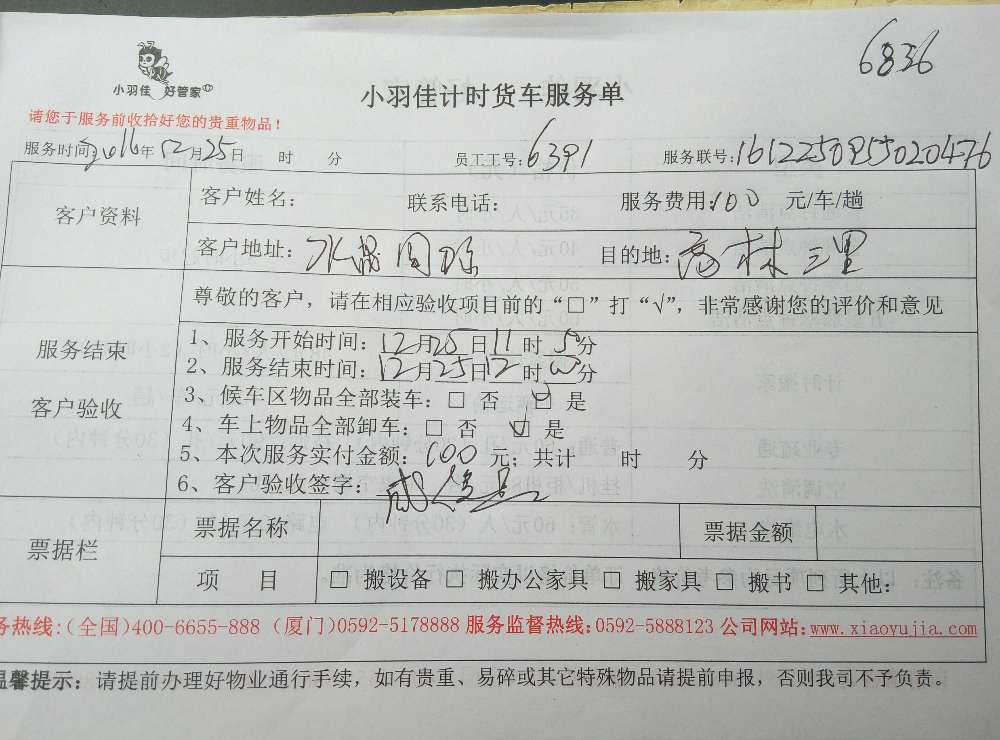 6836
小羽佳 好管家
小羽佳计时货车服务单
请您于服务前收拾好您的贵重物品！
服务时间：2016年12月25日 时 分 员工工号：6391 服务联号：1612250955020476
客户资料
客户姓名： 联系电话： 服务费用：100 元/车/趟
客户地址：水晶 目的地：高林三里
服务结束
客户验收
尊敬的客户，请在相应验收项目前的“□”打“√”，非常感谢您的评价和意见
1、服务开始时间：12月25日11时50分
2、服务结束时间：12月25日12时00分
3、候车区物品全部装车：□ 否 ☑ 是
4、车上物品全部卸车：□ 否 ☑ 是
5、本次服务实付金额：100元；共计 时 分
6、客户验收签字：
票据栏
票据名称 票据金额
项 目 □ 搬设备 □ 搬办公家具 □ 搬家具 □ 搬书 □ 其他：
务热线：(全国)400-6655-888 (厦门)0592-5178888 服务监督热线：0592-5888123 公司网站：www.xiaoyujia.com
温馨提示：请提前办理好物业通行手续，如有贵重、易碎或其它特殊物品请提前申报，否则我司不予负责。